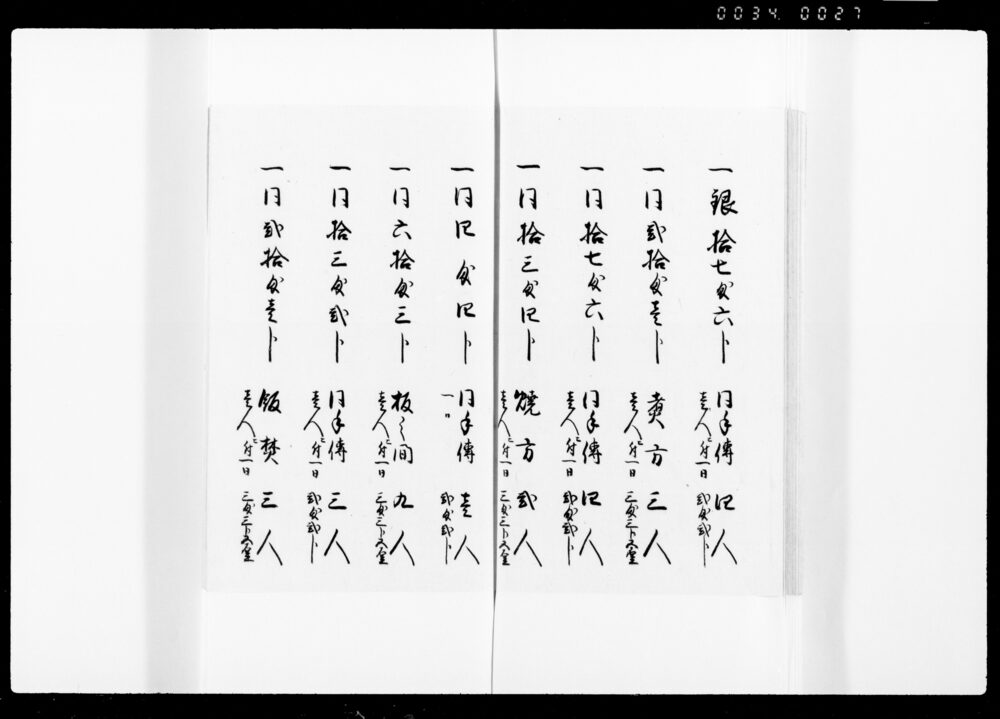 0034. 0027
一銀拾七匁六分 同手傳 四人
壱人ニ付一日 弐匁弐分
一同弐拾匁壱分 煮方 三人
壱人ニ付一日 三匁三分五厘
一同拾七匁六分 同手傳 四人
壱人ニ付一日 弐匁弐分
一同拾三匁四分 焼方 弐人
壱人ニ付一日 三匁三分五厘
一同四匁四分 同手傳 壱人
一日 弐匁弐分
一同六拾匁三分 板之間 九人
壱人ニ付一日 三匁三分五厘
一同拾三匁弐分 同手傳 三人
壱人ニ付一日 弐匁弐分
一同弐拾匁壱分 飯焚 三人
壱人ニ付一日 三匁三分五厘